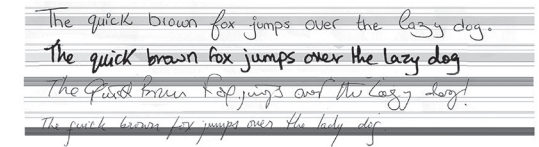 The quick brown fox jumps over the lazy dog.
The quick brown fox jumps over the lazy dog
The Quick Brown Fox jumps over the Lazy dog!
The quick brown fox jumps over the lady dog